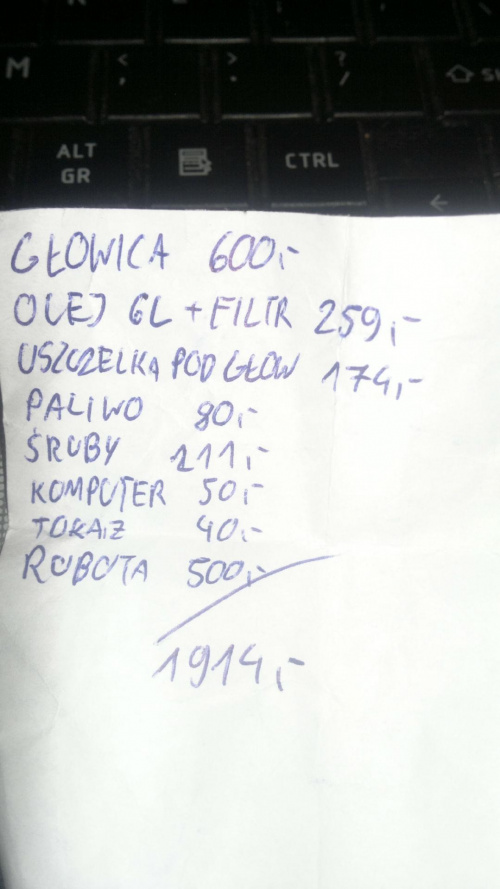 M < , > . ? /
ALT GR CTRL ←
GŁOWICA 600,-
OLEJ 6L + FILTR 259,-
USZCZELKA POD GŁOW 174,-
PALIWO 80,-
ŚRUBY 211,-
KOMPUTER 50,-
TOKAŻ 40,-
ROBOTA 500,-
1914,-